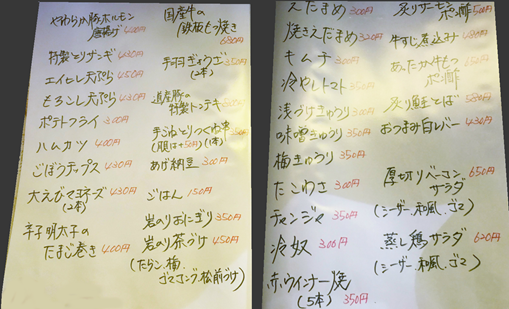 やわらか豚ホルモン
唐揚げ 400円
特製とりザンギ 430円
エイヒレ天ぷら 450円
もろこし天ぷら 430円
ポテトフライ 300円
ハムカツ 400円
ごぼうチップス 430円
大えびマヨネーズ 430円
(2本)
辛子明太子の
たまご巻き 400円
国産牛の
鉄板もつ焼き
680円
手羽ぎょうざ 350円
(2本)
道産豚の
特製トンテキ
手ごねとりつくね串
(1本)
あげ納豆 300円
ごはん 150円
岩のりおにぎり 350円
岩のり茶づけ 450円
(たらこ、梅、
ゴマコンブ、松前づけ)
えだまめ 300円
焼きえだまめ 320円
キムチ 300円
冷やしトマト 350円
浅づけきゅうり 300円
味噌きゅうり 350円
梅きゅうり 350円
たこわさ 300円
チャンジャ 350円
冷奴 300円
赤ウインナー焼
(5本) 350円
炙りサーモン
ポン酢 550円
牛すじ煮込み 480円
あったか牛もつ
ポン酢 550円
炙り鮭とば 580円
おつまみ白レバー 430円
厚切りベーコン 650円
サラダ
(シーザー、和風、ゴマ)
蒸し鶏サラダ 620円
(シーザー、和風、ゴマ)